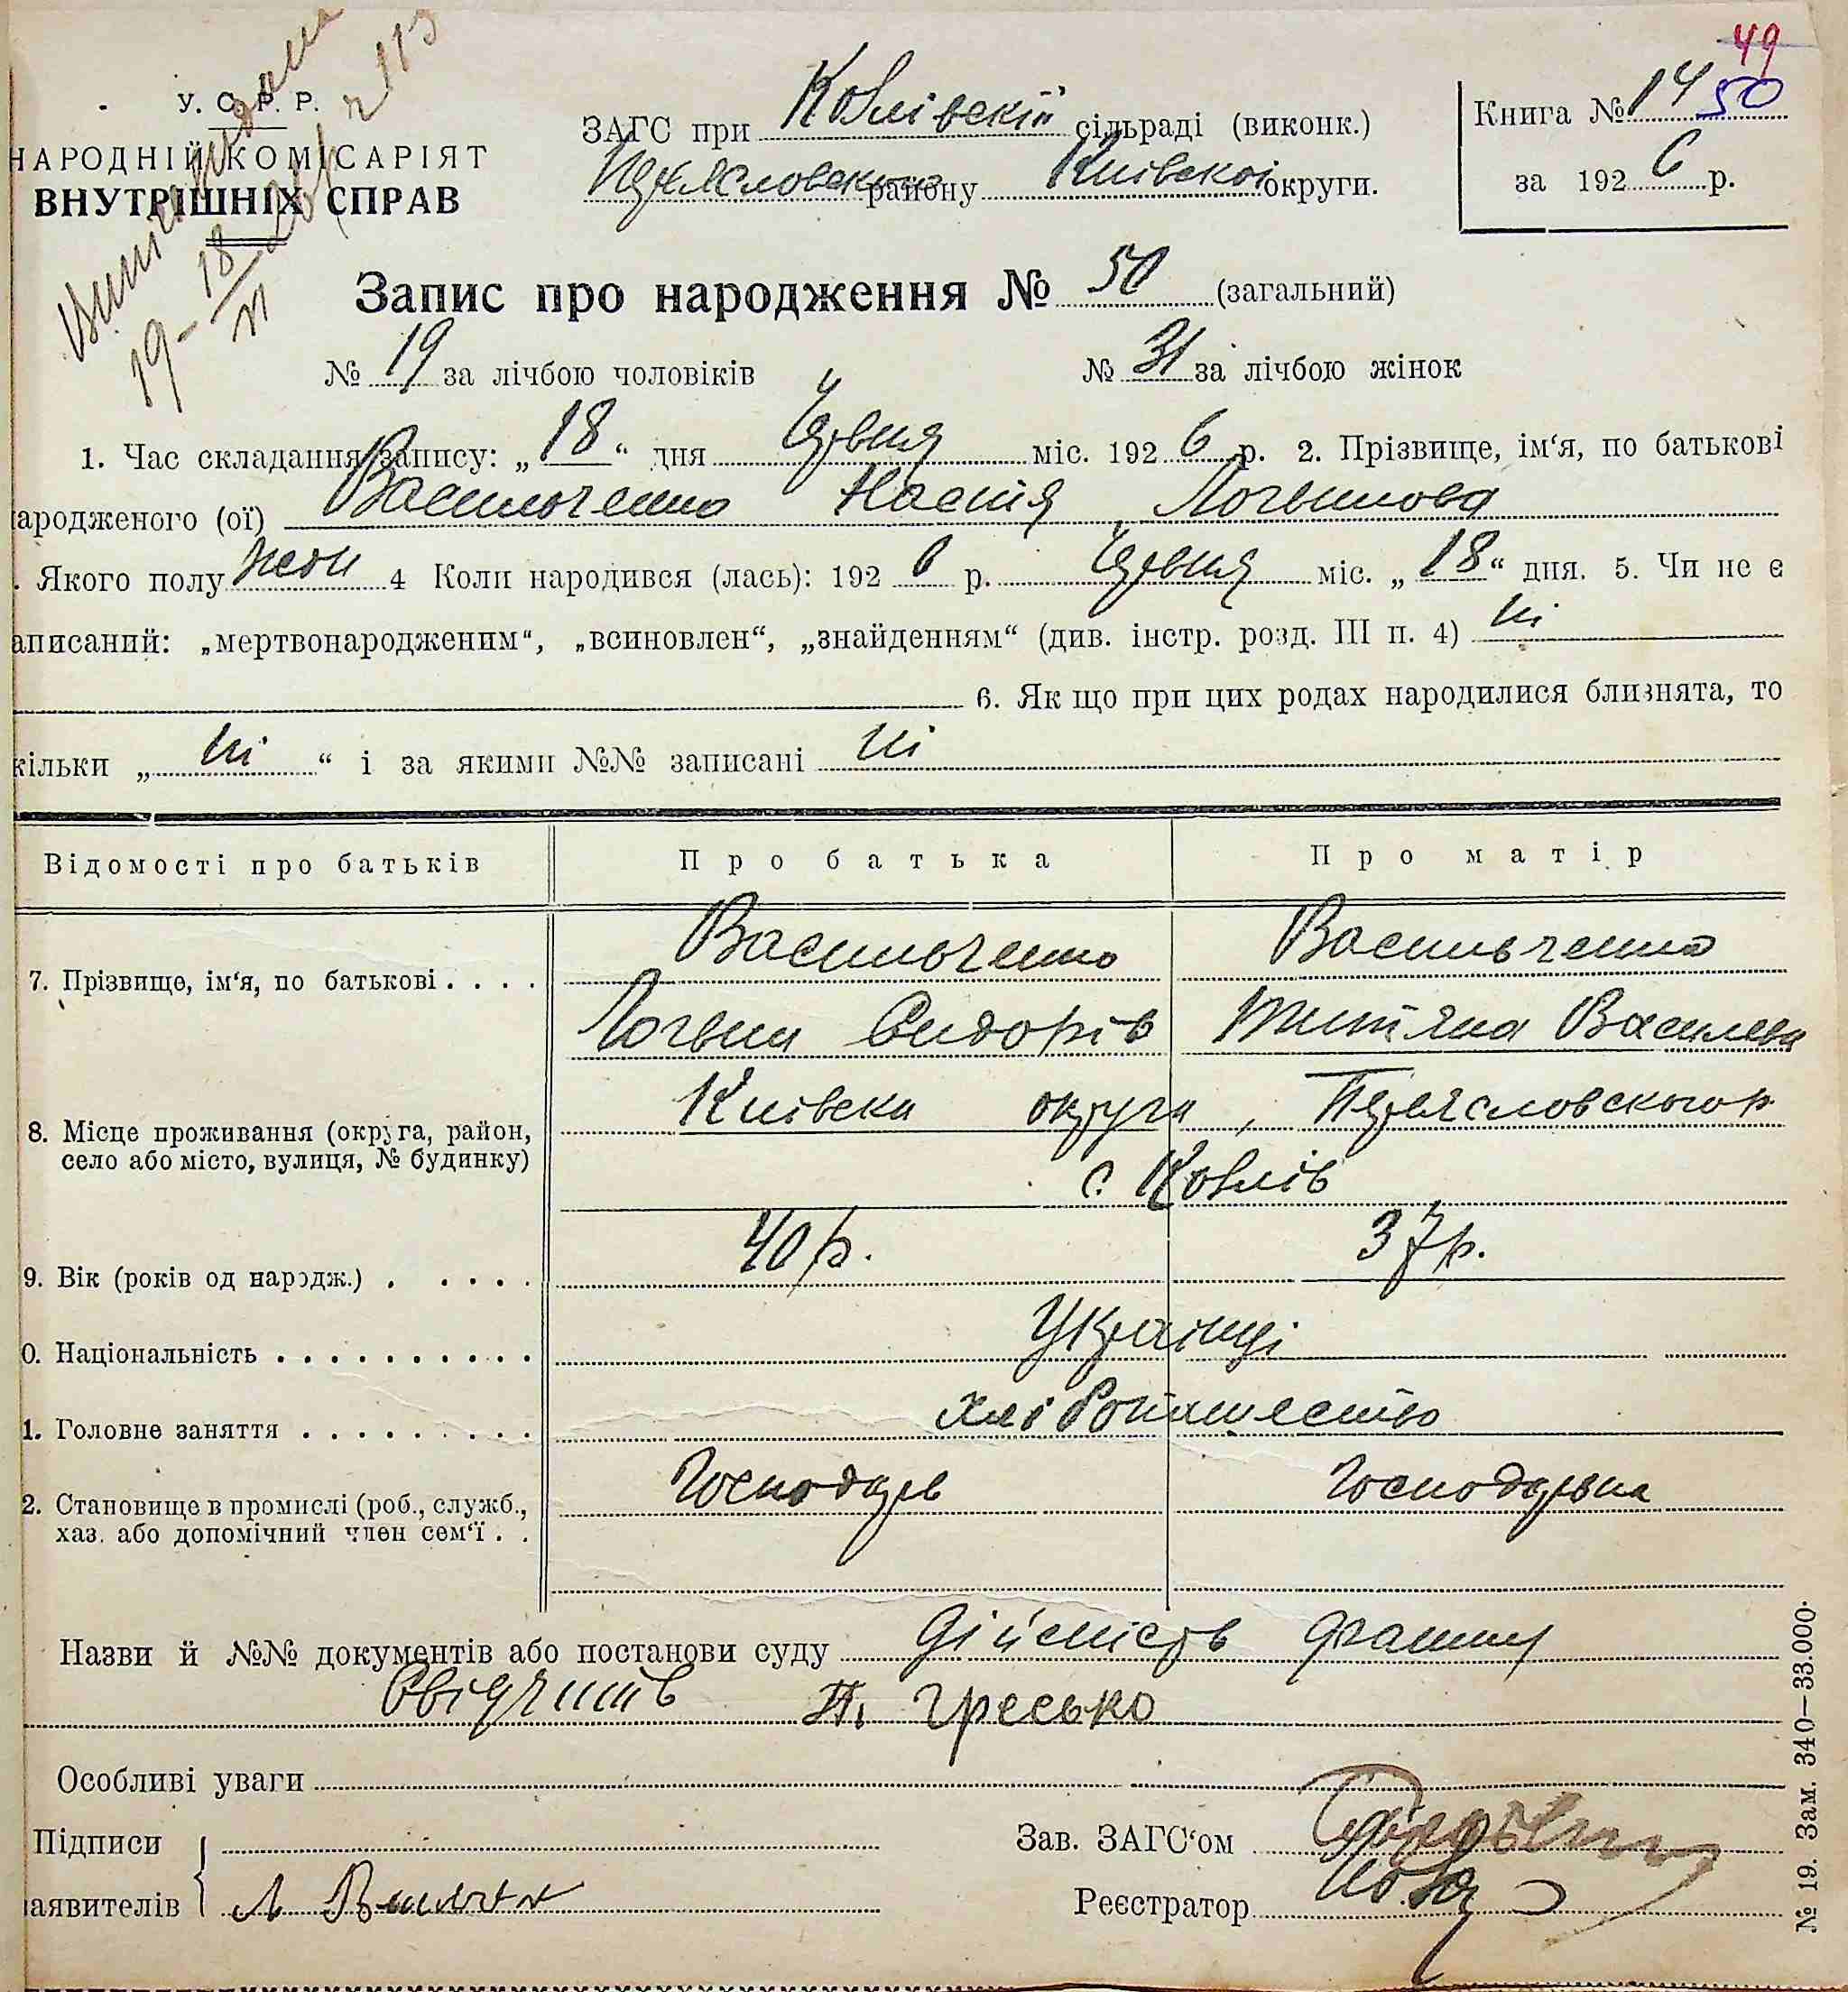 49
У. С. Р. Р.
НАРОДНІЙ КОМІСАРІЯТ
ВНУТРІШНІХ СПРАВ
ЗАГС при Ковлівскій сільраді (виконк.)
Переясловського району Київскоі округи.
Книга № 14 50
за 1926 р.
19- 18/VI
Запис про народження № 50 (загальний)
№ 19 за лічбою чоловіків № 31 за лічбою жінок
1. Час складання запису: „18“ дня Червня міс. 1926 р. 2. Прізвище, ім‘я, по батькові
ародженого (ої) Васильченко Настя Логвинова
. Якого полу жен 4 Коли народився (лась): 1926 р. Червня міс. „18“ дня. 5. Чи не є
аписаний: „мертвонародженим“, „всиновлен“, „знайденням“ (див. інстр. розд. III п. 4) ні
6. Як що при цих родах народилися близнята, то
кільки „ ні “ і за якими №№ записані ні
Відомості про батьків Про батька Про матір
7. Прізвище, ім‘я, по батькові . . . . Васильченко Васильченко
Логвин Сидорів Титяна Василева
8. Місце проживання (округа, район, село або місто, вулиця, № будинку) Київска округа, Переясловского р
с. Ковлів
9. Вік (років од народж.) . . . . . 40 р. 37 р.
0. Національність . . . . . . . . . . Українці
1. Головне заняття . . . . . . . . . . хліборошество
2. Становище в промислі (роб., служб., Господар Господарка
хаз. або допомічний член сем‘ї . .
Назви й №№ документів або постанови суду Дійсність факту
Свідчить П. Гресько
Особливі уваги
Підписи
аявителів
Зав. ЗАГС‘ом
Реєстратор
№ 19. Зам. 340—33.000.